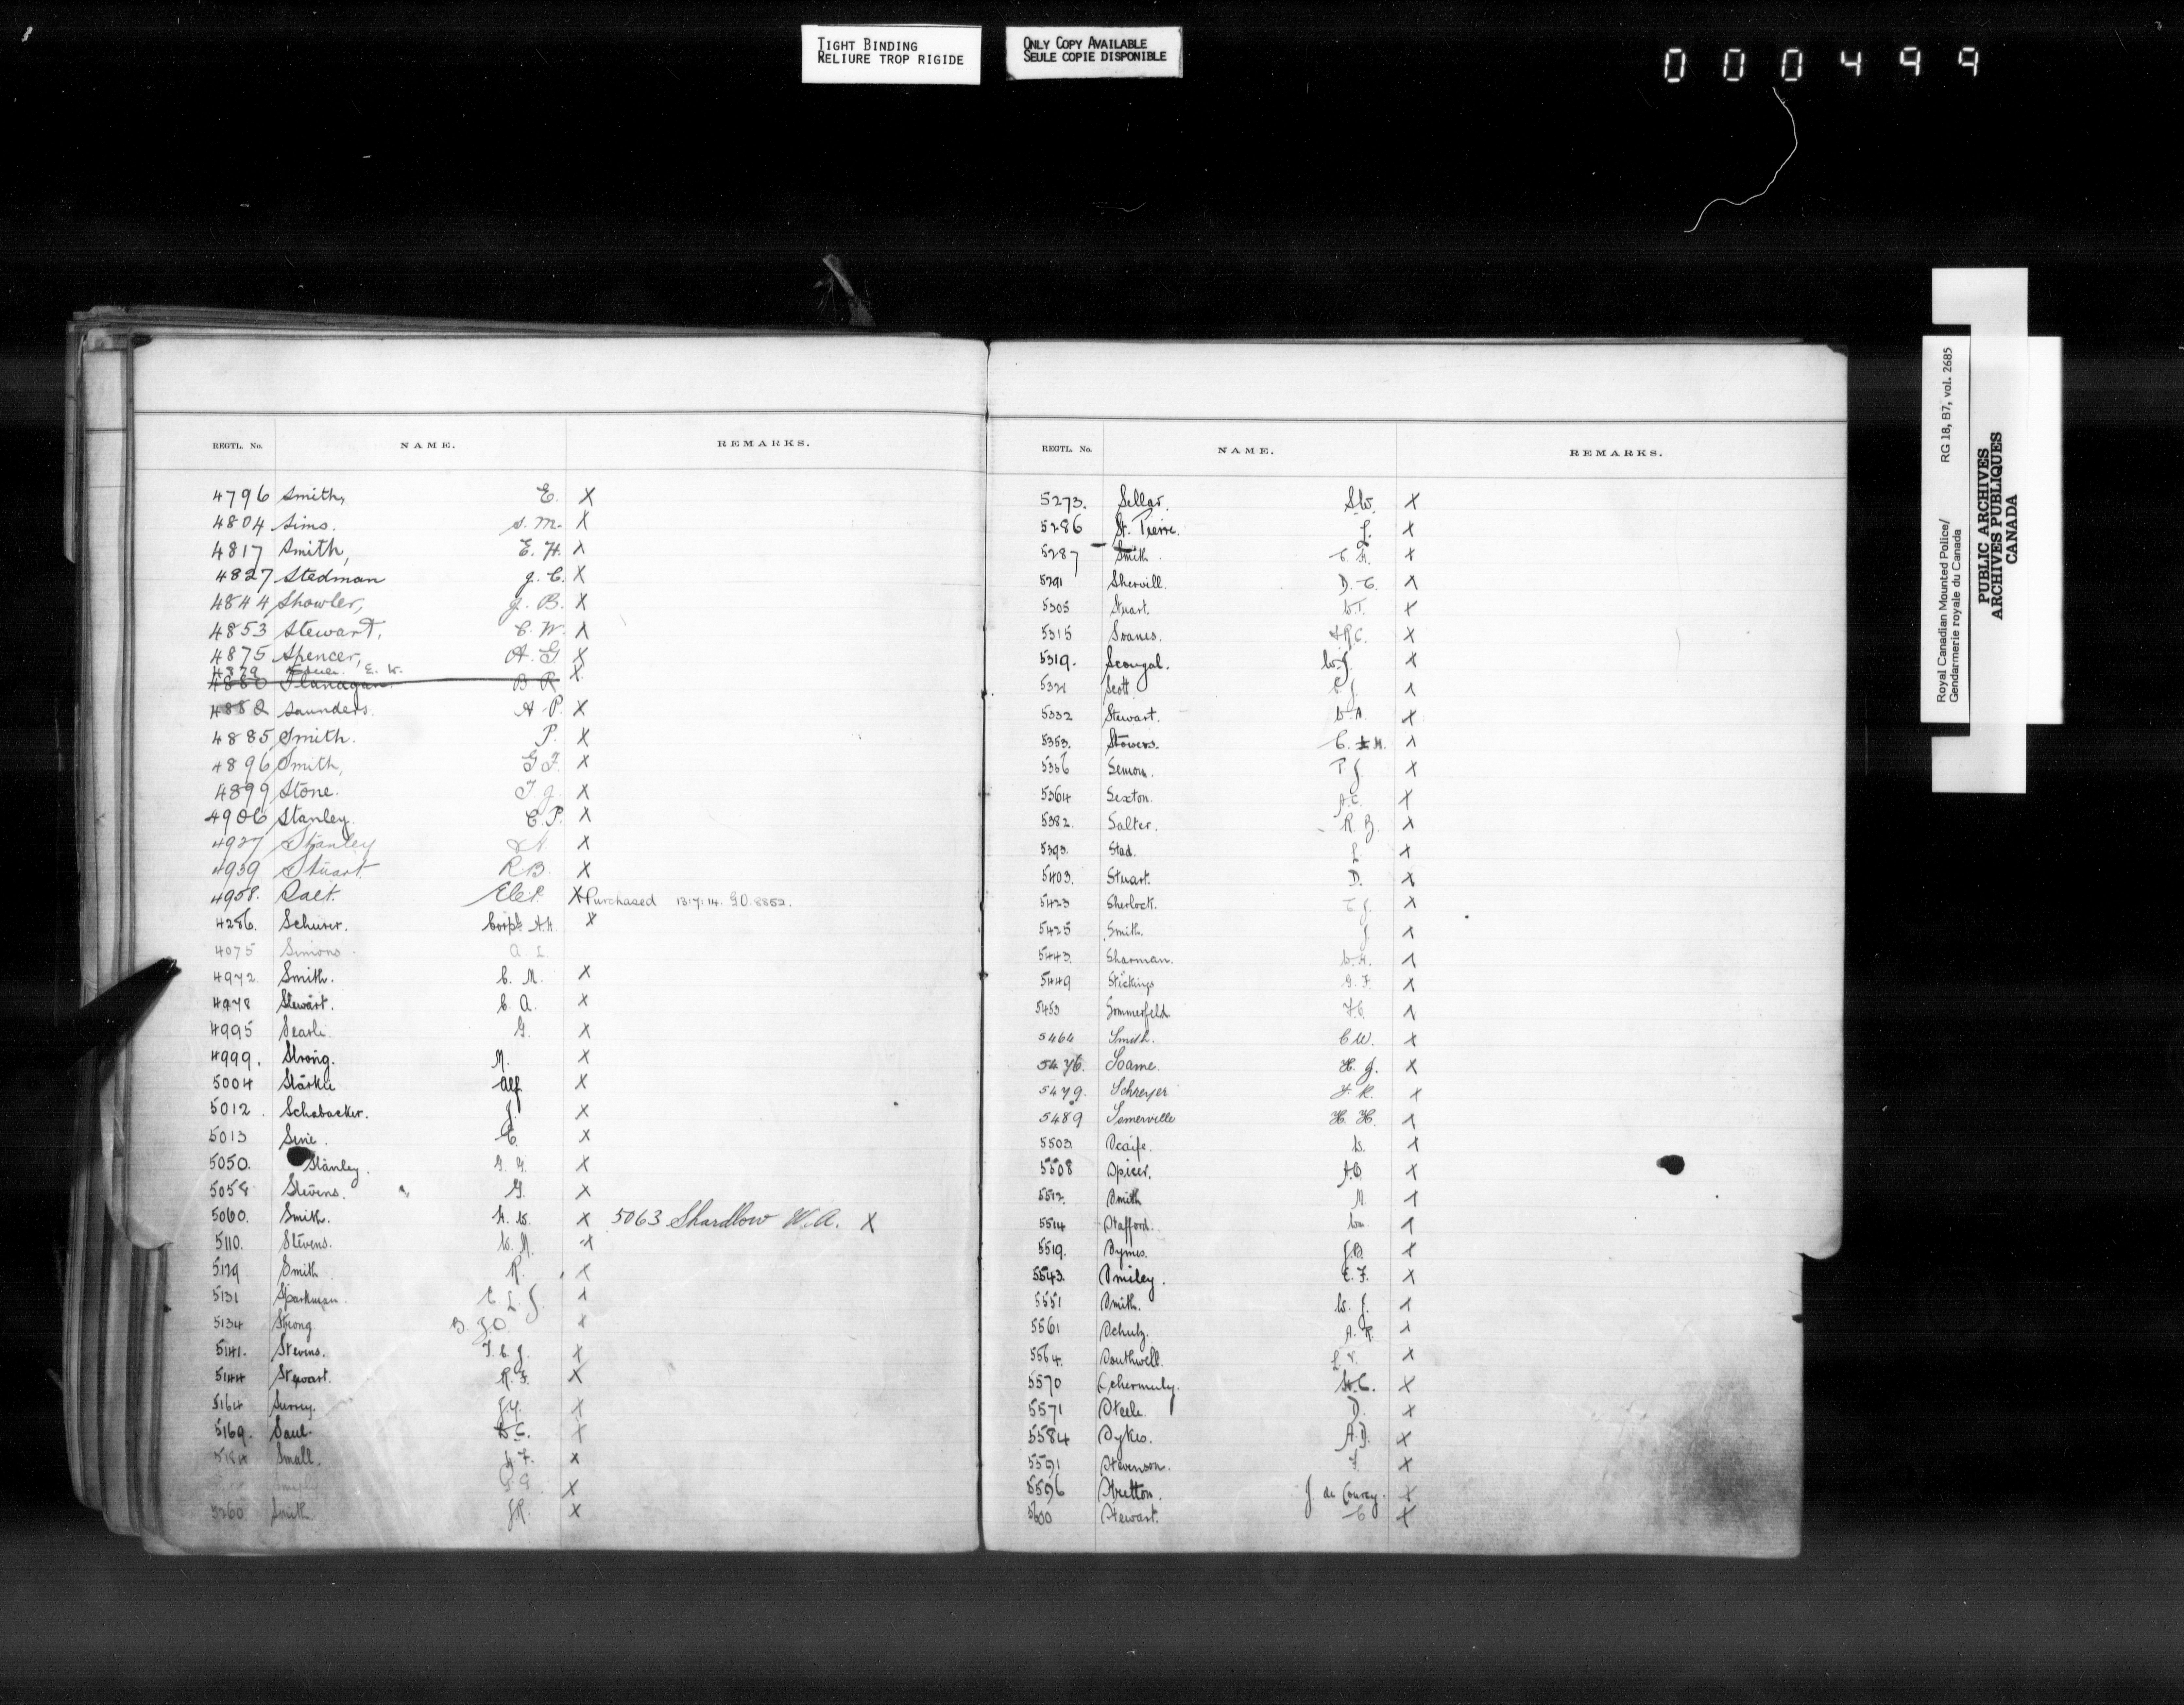 TIGHT BINDING
RELIURE TROP RIGIDE
ONLY COPY AVAILABLE
SEULE COPIE DISPONIBLE
000499
REGTL. No. NAME. REMARKS.
4796 Smith, E. X
4804 Sims. S. M. X
4817 Smith, E. H. X
4827 Stedman J. C. X
4844 Showler, J. B. X
4853 Stewart, C. W. X
4875 Spencer, A. G X
4879 E. W. X
4880 Flanagan B R
4882 Saunders. A. P. X
4885 Smith. P. X
4896 Smith, G F. X
4899 Stone. T J. X
4906 Stanley. C. P. X
4937 Stanley X
4939 Stuart R. B. X
4958. Salt. X Purchased 13.7.14. G.O. 8852.
4286. Schurer. Corpl. A.H. X
4075 Simons. A L.
4972 Smith. C. M. X
4978 Stewart. C. A. X
4995 Searle. G. X
4999. Strong. M. X
5004 Starkie Alf X
5012. Schabacker. J. X
5013 Sine. C. X
5050. Stanley. G. X
5058 Stevens. G. X
5060. Smith. H. W. X 5063 Shardlow W. A. X
5110. Stevens. W. M. X
5129 Smith R. X
5131 Sparkman. C L. J. X
5134 Strong B. J. O. X
5141. Stevens. T. C. J. X
5144 Stewart. R. F. X
5164 Surrey. J.Y. X
5169. Saul. W C. X
Small. J. F. X
G. G. X
5260 Smith. J.R. X
REGTL. No. NAME. REMARKS.
5273. Sellar. S.W. X
5286 St. Pierre. J. X
5287 Smith. C. H. X
5291 Shervill. D. C. X
5305 Stuart. W.T. X
5315 Soanes. X
5319. Scougal. W.J. X
5321 Scott C J. X
5332 Stewart. W. A. X
5353. Stowers. C. H. X
5356 Semon. P J. X
5364 Sexton. A.C. X
5382. Salter. R. B. X
5393. Stad. L. X
5403. Stuart. D. X
5423 Sherlock. C J. X
5425 Smith. J. X
5443. Sharman. W.H. X
5449 Stickings G. F. X
5453 Sommerfeld H.C. X
5464 Smith. C W. X
5476. Soame. H. J. X
5479. Schreyer X
5489 Somerville H. H. X
5503. Scaife. W. X
5508 Spicer. A.B. X
5512. Smith M. X
5514 Stafford. Wm. X
5519. Symes. J.B. X
5543. Smiley. E. F. X
5551 Smith. W. J. X
5561 Schulz. A. R. X
5564. Southwell. L. V. X
5570 Schermuly. H.C. X
5571 Steele D. X
5584 Sykes. A.D. X
5591 Stevenson. X
5596 Stretton. J. de Courcy. X
5600 Stewart. C X
Royal Canadian Mounted Police/
Gendarmerie royale du Canada
RG 18, B7, vol. 2685
PUBLIC ARCHIVES
ARCHIVES PUBLIQUES
CANADA